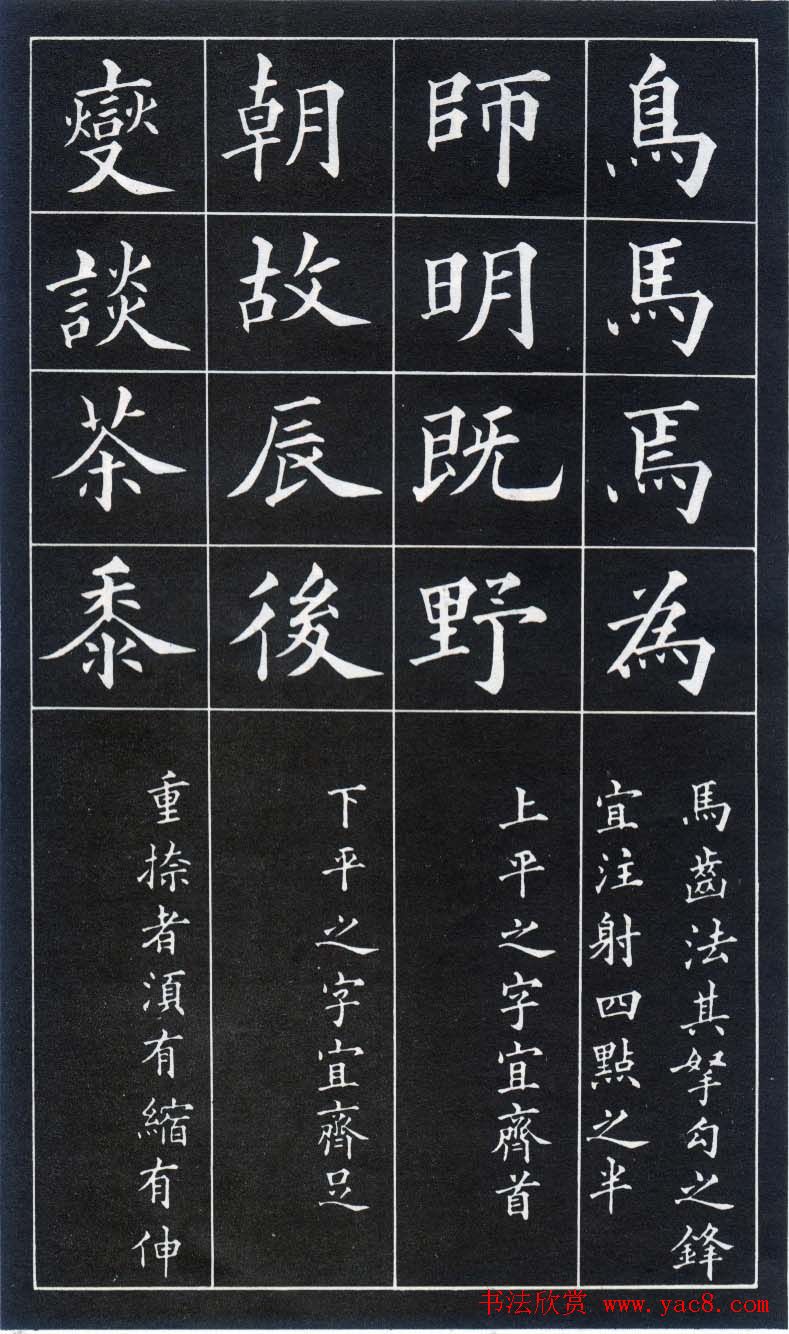 鳥馬焉為
馬齒法其拏勾之鋒
宜注射四點之半
師明既野
上平之字宜齊首
朝故辰後
下平之字宜齊足
燮談茶黍
重捺者湏有縮有伸
书法欣赏 www.yac8.com